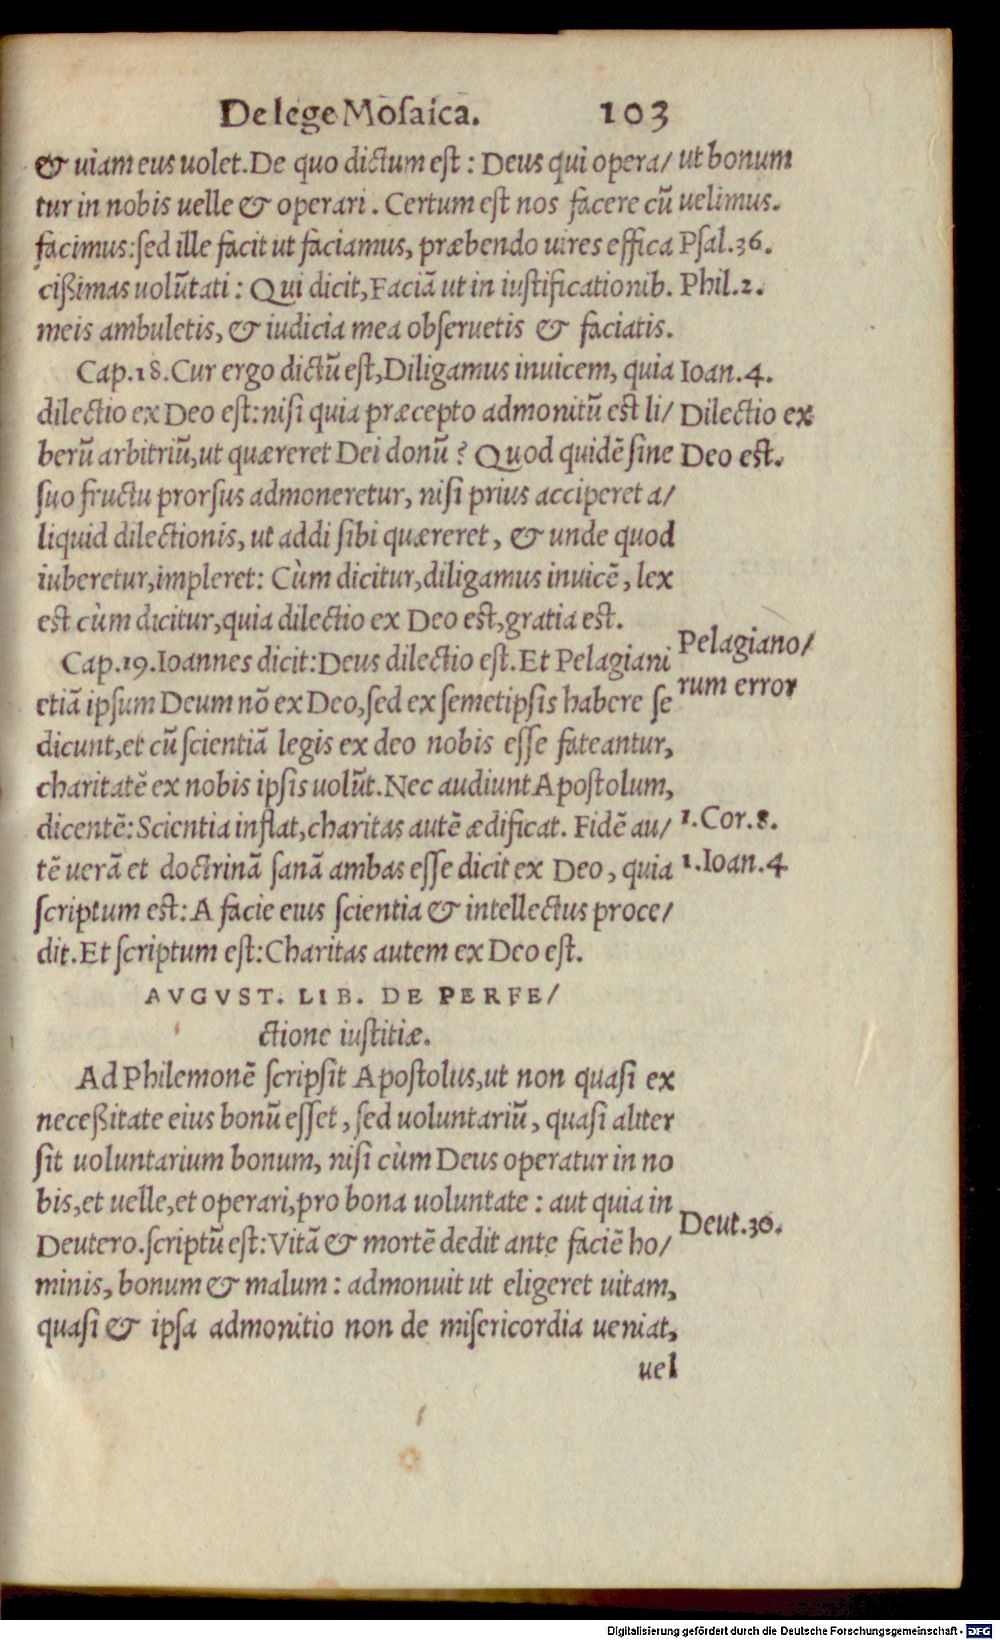 De lege Mosaica. 103
& uiam eus uolet. De quo dictum est: Deus qui opera/ ut bonum
tur in nobis uelle & operari. Certum est nos facere cũ uelimus.
facimus: sed ille facit ut faciamus, præbendo uires effica Psal.36.
cißimas uolũtati: Qui dicit, Faciã ut in iustificationib. Phil.2.
meis ambuletis, & iudicia mea obseruetis & faciatis.
Cap.18. Cur ergo dictũ est, Diligamus inuicem, quia Ioan.4.
dilectio ex Deo est: nisi quia præcepto admonitũ est li/ Dilectio ex
berũ arbitriũ, ut quæreret Dei donũ? Quod quidẽ sine Deo est.
suo fructu prorsus admoneretur, nisi prius acciperet a/
liquid dilectionis, ut addi sibi quæreret, & unde quod
iuberetur, impleret: Cùm dicitur, diligamus inuicẽ, lex
est cùm dicitur, quia dilectio ex Deo est, gratia est.
Cap.19. Ioannes dicit: Deus dilectio est. Et Pelagiani Pelagiano/
etiã ipsum Deum nõ ex Deo, sed ex semetipsis habere se rum error
dicunt, et cũ scientiã legis ex deo nobis esse fateantur,
charitatẽ ex nobis ipsis uolũt. Nec audiunt Apostolum,
dicentẽ: Scientia inflat, charitas autẽ ædificat. Fidẽ au/ 1.Cor.8.
tẽ uerã et doctrinã sanã ambas esse dicit ex Deo, quia 1.Ioan.4
scriptum est: A facie eius scientia & intellectus proce/
dit. Et scriptum est: Charitas autem ex Deo est.
AVGVST. LIB. DE PERFE/
ctione iustitiæ.
Ad Philemonẽ scripsit Apostolus, ut non quasi ex
neceßitate eius bonũ esset, sed uoluntariũ, quasi aliter
sit uoluntarium bonum, nisi cùm Deus operatur in no
bis, et uelle, et operari, pro bona uoluntate: aut quia in
Deutero. scriptũ est: Vitã & mortẽ dedit ante faciẽ ho/ Deut.30.
minis, bonum & malum: admonuit ut eligeret uitam,
quasi & ipsa admonitio non de misericordia ueniat,
uel
Digitalisierung gefördert durch die Deutsche Forschungsgemeinschaft - DFG